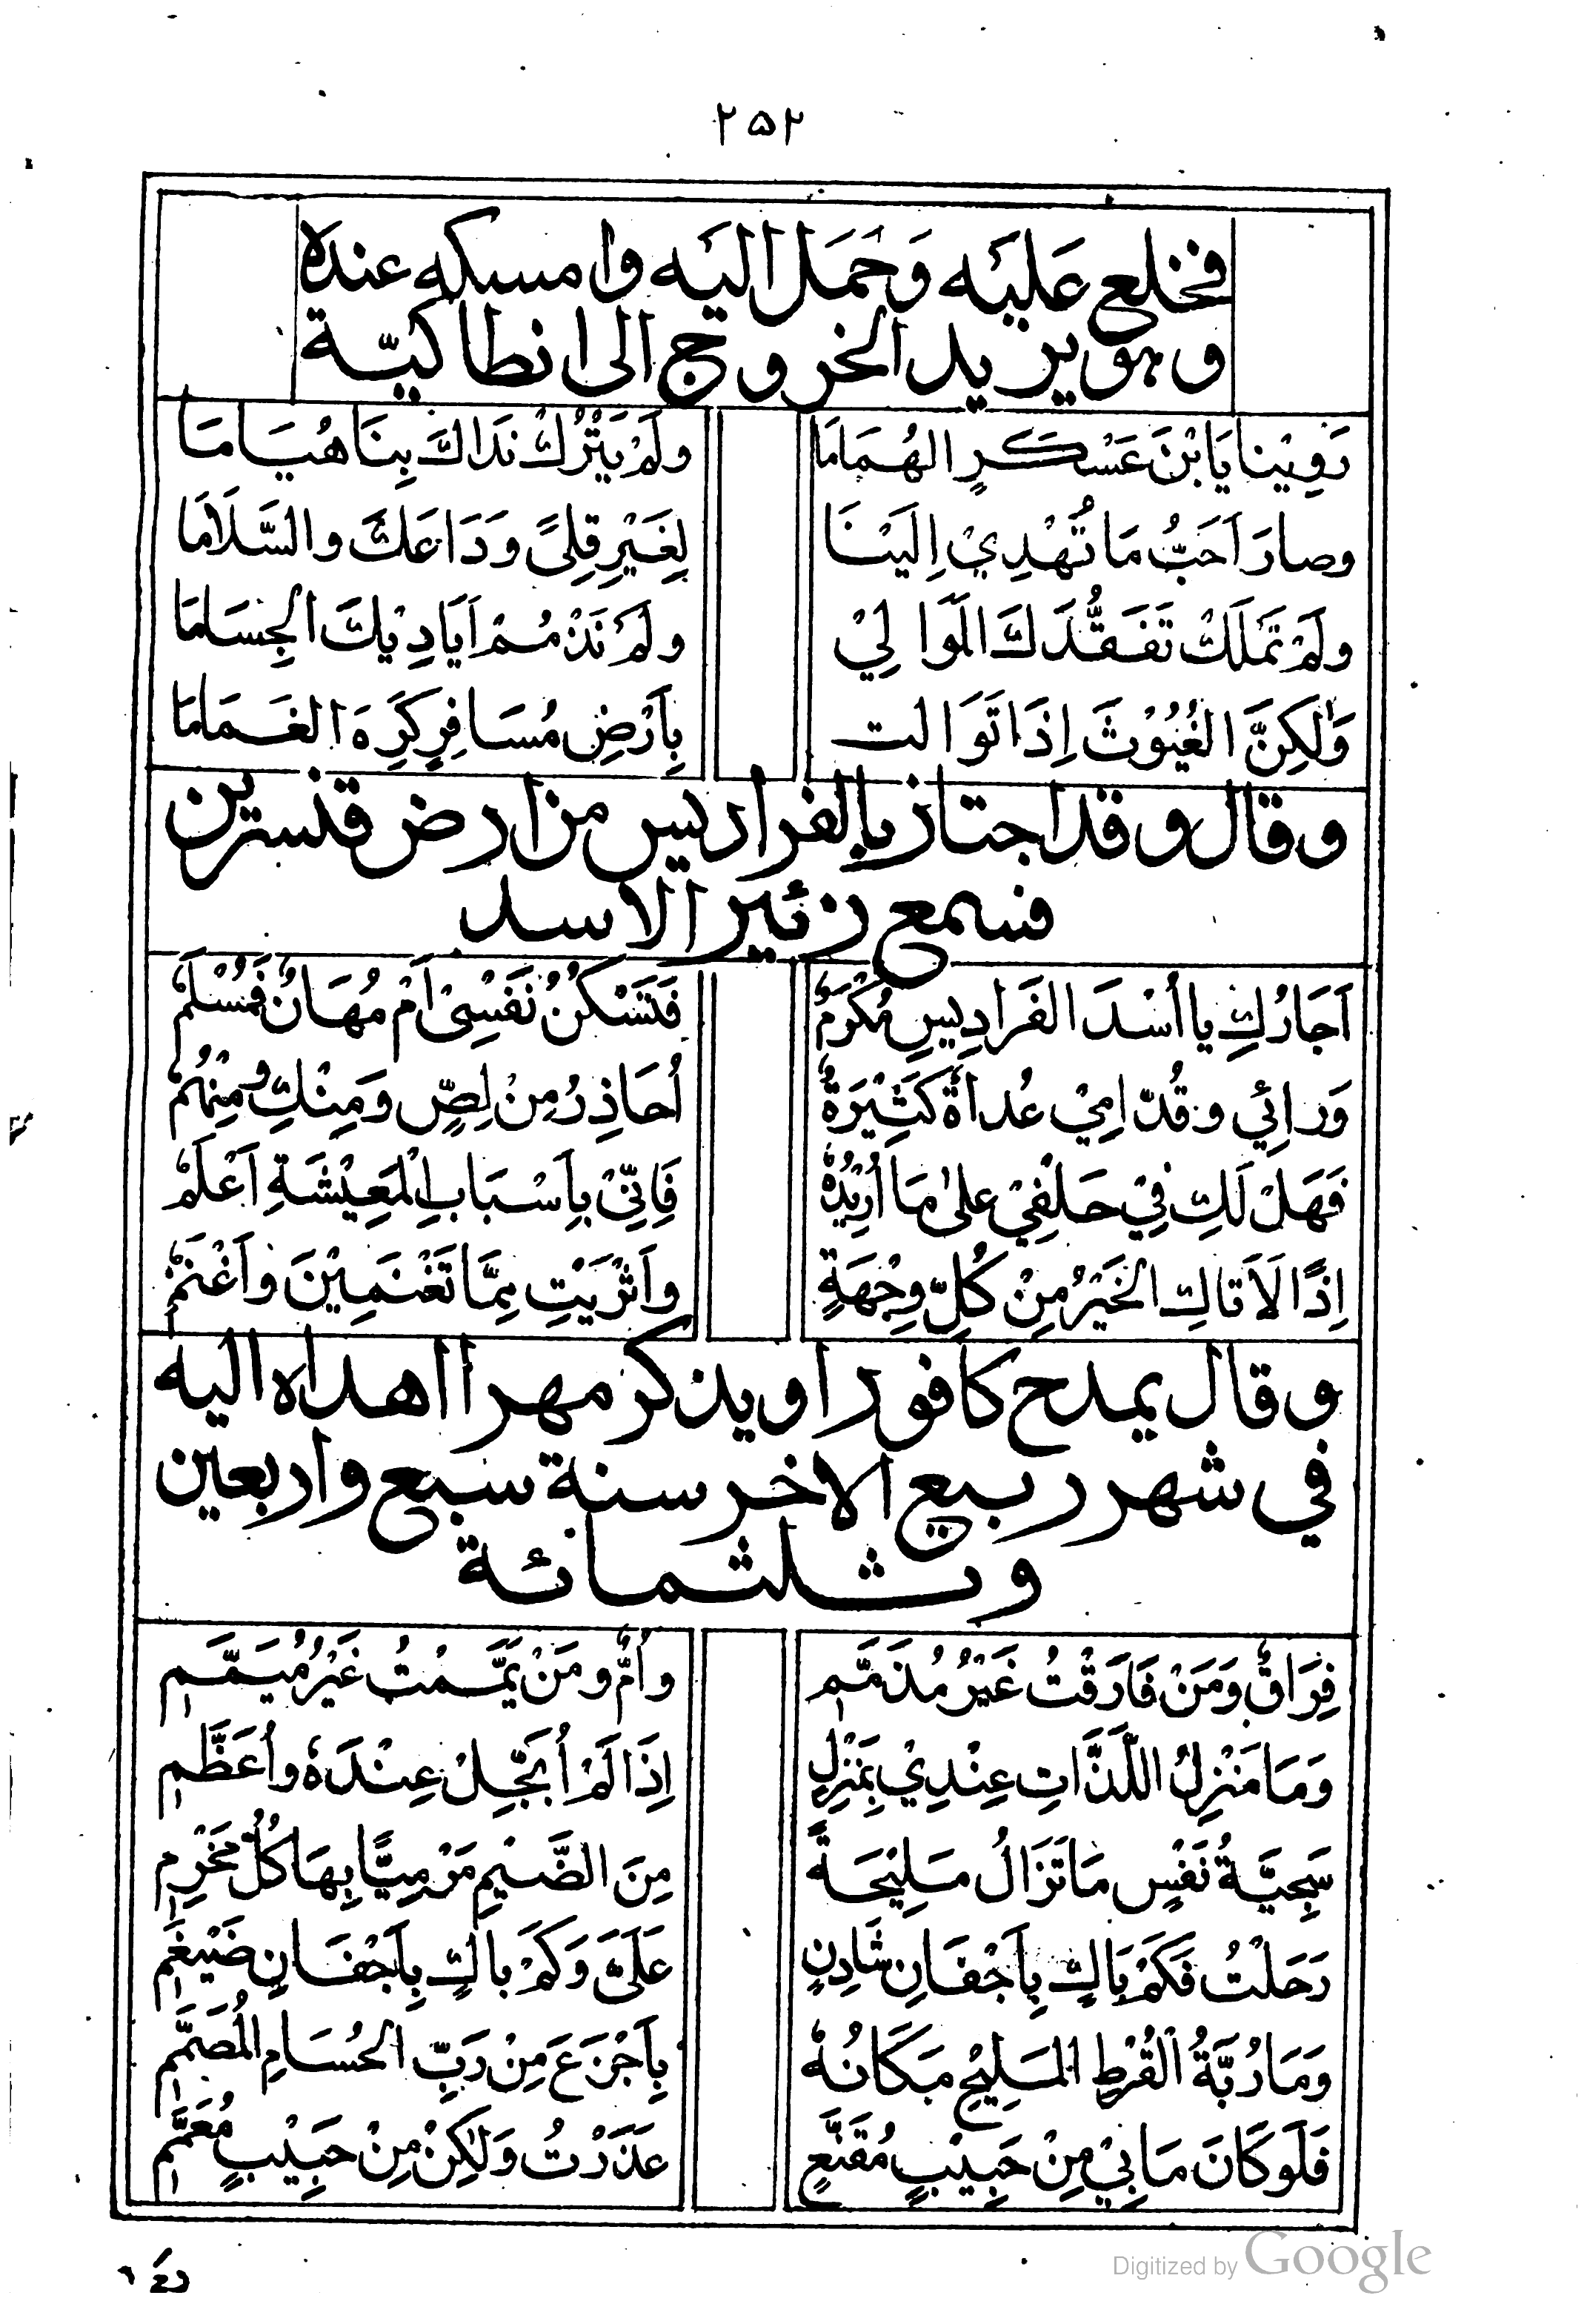 ۲۵۲
فخلع عَليَه وَحمَل اليَه وامسكه عنده
وهو يريد الخروج الى انطاكيّة
رَوِيْنا يَا ابْنَ عَسْكَرٍ الهُمَامَا ولَمْ يَتْرُكْ نَدَاكَ بِنَا هُيَامَا
وصارَ اَحَبُّ مَا تُهْدِيْ اِلَيْنَا لِغَيْرِ قِلىً وَدَاعَكَ والسَّلَامَا
ولَمْ تَمْلَلْ تَفَقُّدَكَ المَوَالِيْ ولَمْ نَذْمُمْ اَيَادِيْكَ الجِسَامَا
وَلٰكِنَّ الغُيُوْثَ اِذَا تَوَالت بِاَرْضِ مُسَافِرٍ كَرِهَ الغَمَامَا
وقال وقد اجتاز بالفراديس من ارض قنسرين
فسمع زئير الاسد
اَجَارُكِ يا اُسْدَ الفَرادِيسِ مُكْرَمُ فَتَسْكُنُ نَفْسِيْ اَمْ مُهَانٌ فَمُسْلَمُ
وَرائِي وقُدّامِيْ عُداةٌ كَثِيْرَةٌ اُحَاذِرُ مِنْ لِصٍّ وَمِنْكِ ومِنْهُمُ
فَهَلْ لَكِ فِيْ حَلْفِيْ على مَا اُرِيْدُهُ فَاِنِّيْ بِاَسْبَابِ الْمَعِيْشَةِ اَعْلَمُ
اِذًا لَاَتاكِ الخَيْرُ مِنْ كُلِّ وِجْهَةٍ واَثْرَيْتِ مِمَّا تَغْنَمِيْنَ واَغْنَمُ
وقال يمدح كافورا ويذكر مهرا اهداه اليه
في شهر ربيع الاخر سنة سبع واربعين
وثلثمائة
فِرَاقٌ وَمَنْ فَارَقْتُ غَيْرُ مُذَمَّمِ واُمٌّ ومَنْ يَمَّمْتُ غَيْرُ مُيَمَّمِ
وَمَا مَنْزِلُ اللَّذَّاتِ عِنْدِيْ بِمَنْزِلٍ اِذَا لَمْ اُبَجَّلْ عِنْدَهُ واُعَظَّمِ
سَجِيَّةُ نَفْسٍ مَا تَزَالُ مَلِيْحَةً مِنَ الضَّيْمِ مَرْمِيًّا بِهَا كُلُّ مَخْرِمِ
رَحَلْتُ فَكَمْ بَاكٍ بِاَجْفَانِ شَادِنٍ عَلَىَّ وَكَمْ باكٍ بِاَجْفَانِ ضَيْغَمِ
وَمَا رُبَّةُ القُرْطِ المَلِيْحِ مَكَانُهُ بِاَجْزَعَ مِنْ رَبِّ الحُسَامِ المُصَمَّمِ
فَلَو كَانَ مَا بِيْ مِنْ حَبِيْبٍ مُقَنَّعٍ عَذَرْتُ وَلٰكِنْ مِنْ حَبِيْبٍ مُعَمَّمِ
Digitized by Google